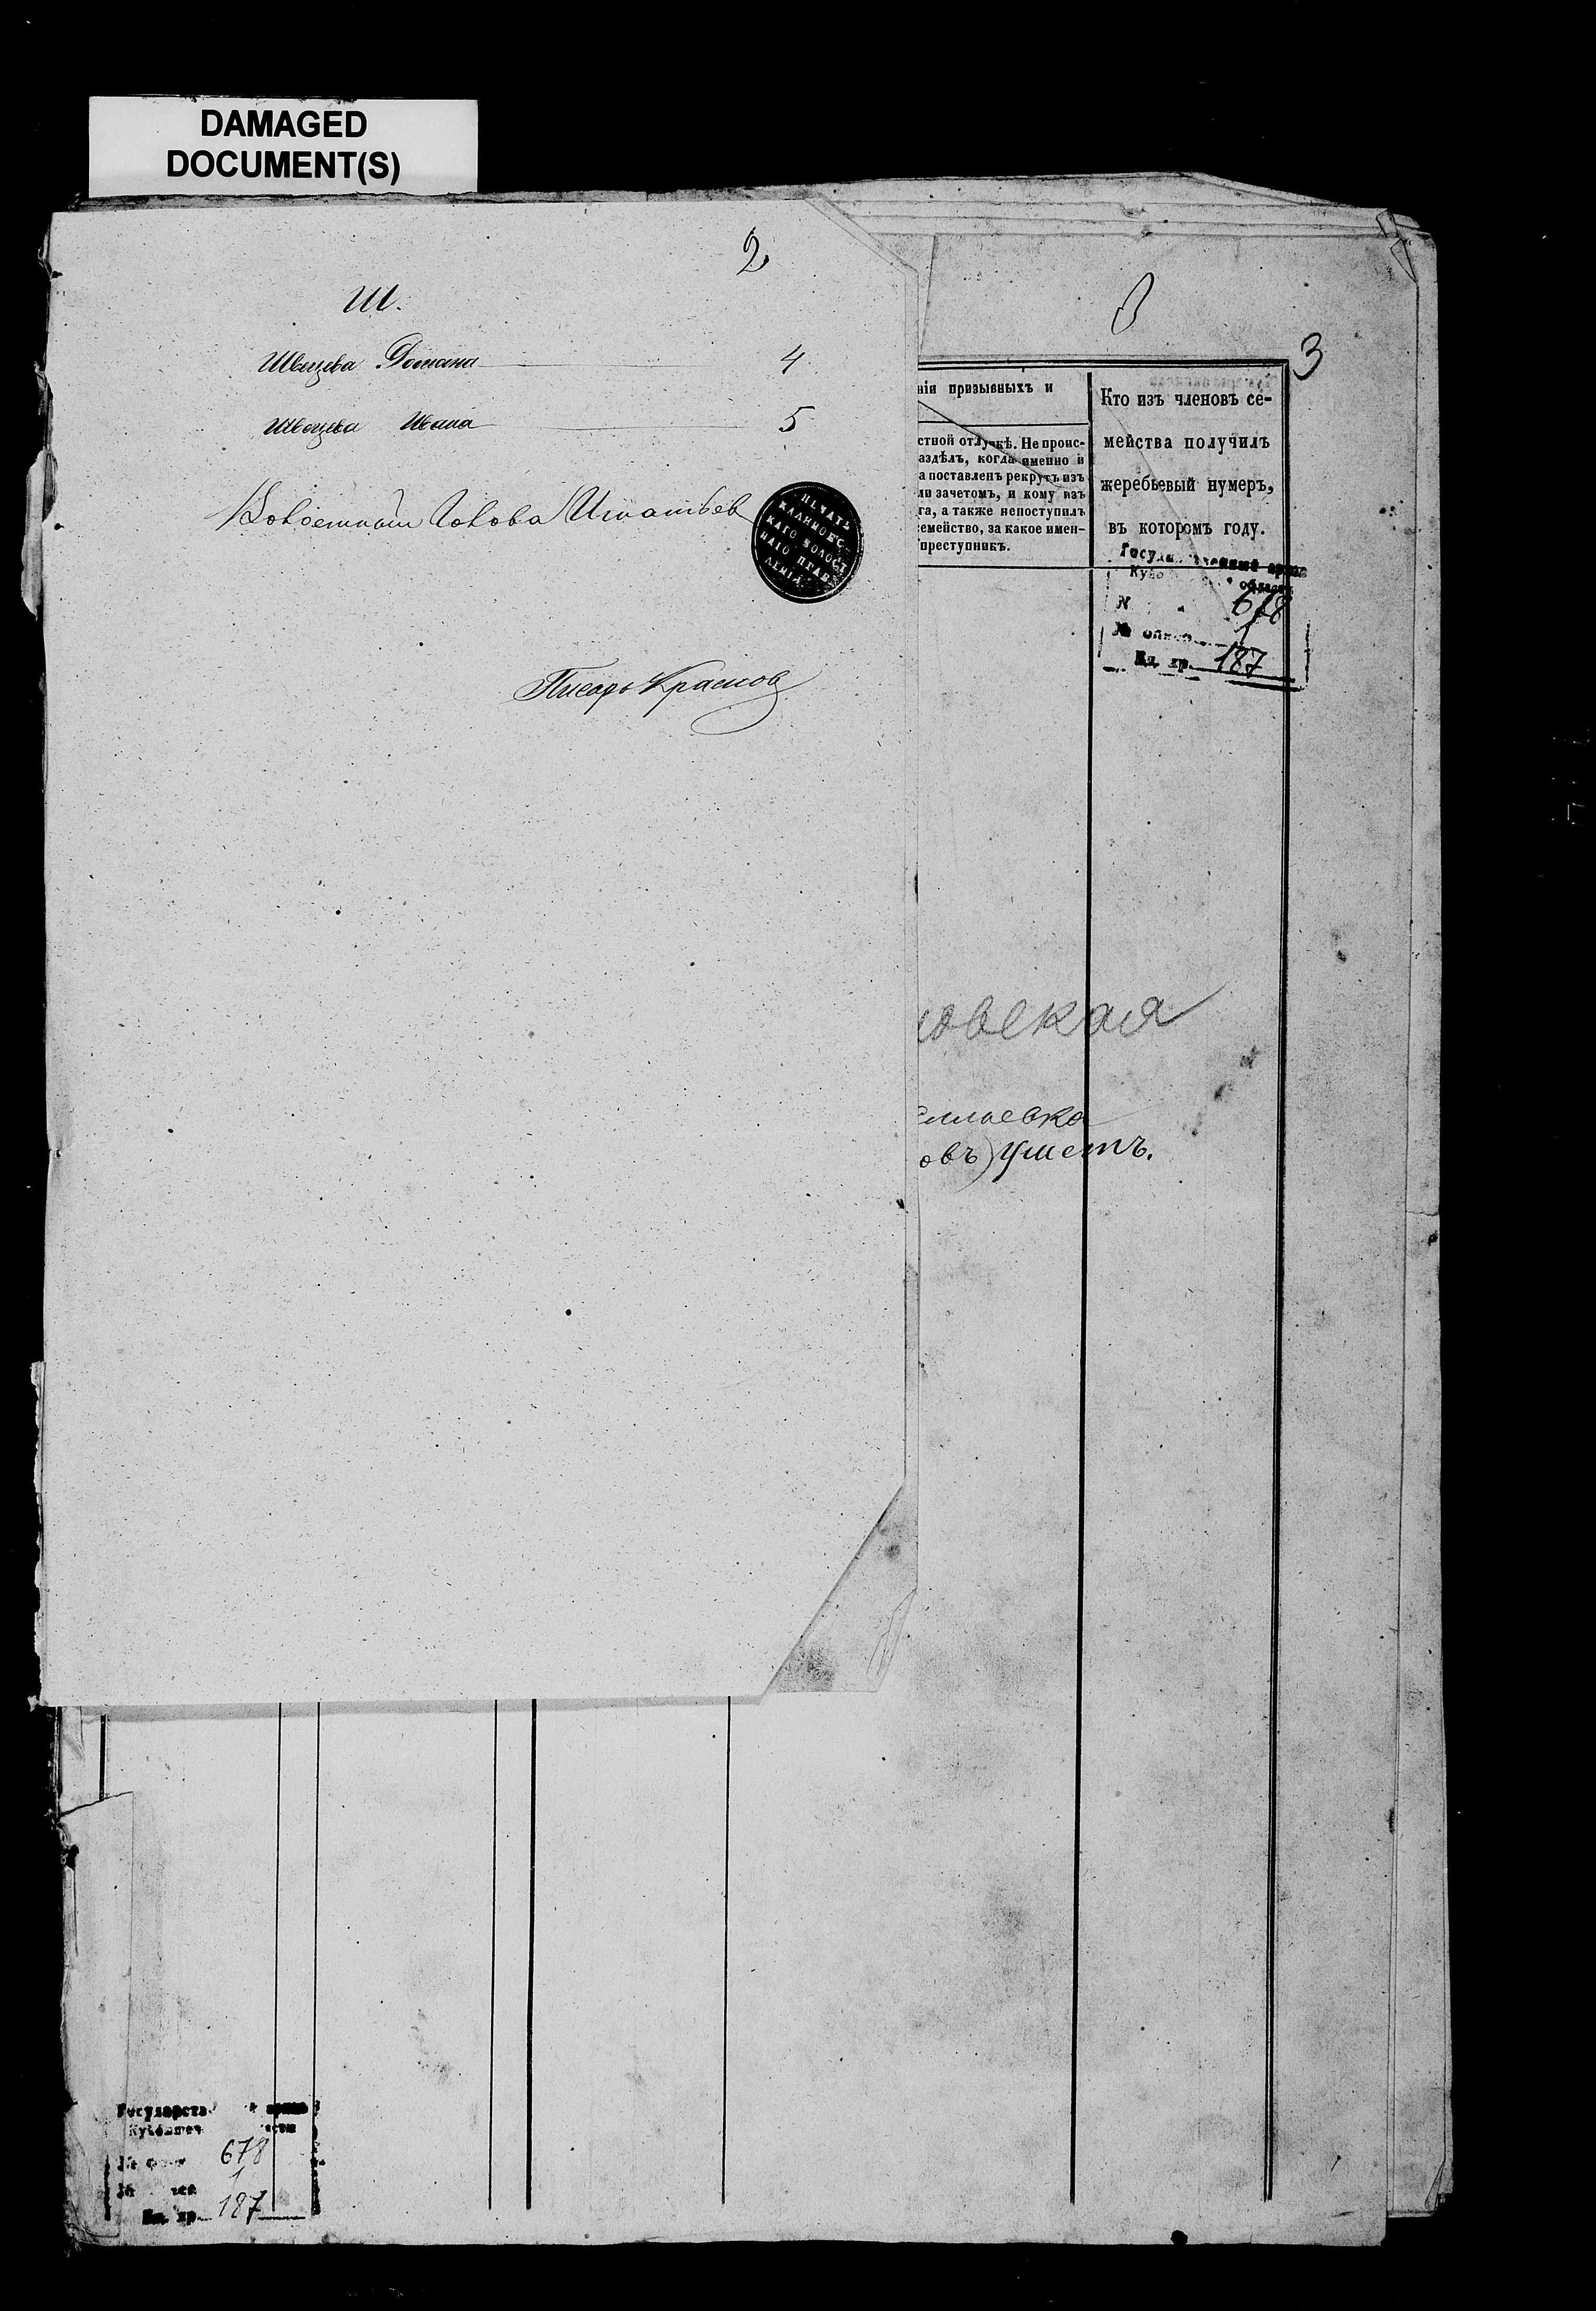 DAMAGED
DOCUMENT(S)
2
Ш.
Швецова Романа 4
Швецова Ивана 5
Волостной Голова Игнатьев
ПЕЧАТЬ
КАЛИНОВС
КАГО ВОЛОСТ
НАГО ПРАВ
ЛЕНІЯ
Писарь Краснов
3
ніи призывныхъ и
стной отлучкѣ. Не проис-
аздѣлъ, когда именно и
а поставленъ рекрутъ изъ
ли зачетомъ, и кому изъ
га, а также непоступилъ
емейство, за какое имен-
преступникъ.
Кто изъ членовъ се-
мейства получилъ
жеребьевый нумеръ,
въ которомъ году.
678
№ описи 1
Ед. хр. 187
овская
овъ) Уметъ.
678
1
Ед. хр. 187